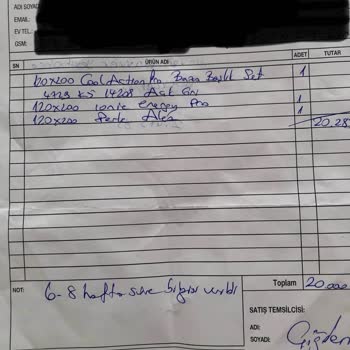 ADI SOYAD
EMAIL:
EV TEL.:
GSM:
SN ÜRÜN ADI ADET TUTAR
120x200 Cool Action Pro Baza Başlık Set 1
KS 14208
120x200 ionic energy Pro 1
120x200 1 20.28
NOT: 6-8 hafta süre bilgisi verildi
Toplam 20.000
SATIŞ TEMSİLCİSİ:
ADI:
SOYADI: Çiğdem